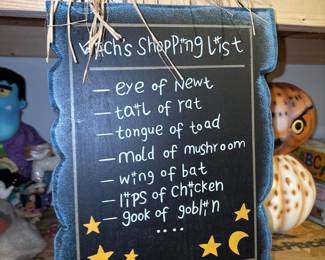 Witch's Shopping List
— eye of Newt
— tail of rat
— tongue of toad
— mold of mushroom
— wing of bat
— lips of Chicken
— gook of goblin
....